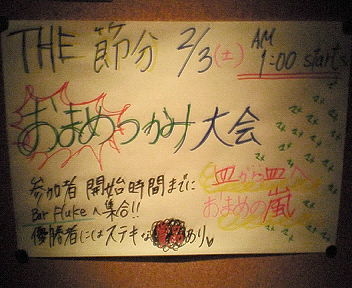 THE 節分 2/3(土) AM 1:00 start
おまめつかみ大会
参加者 開始時間までに
Bar Flukeへ集合!!
優勝者にはステキな あり♥
皿から皿へ
おまめの嵐